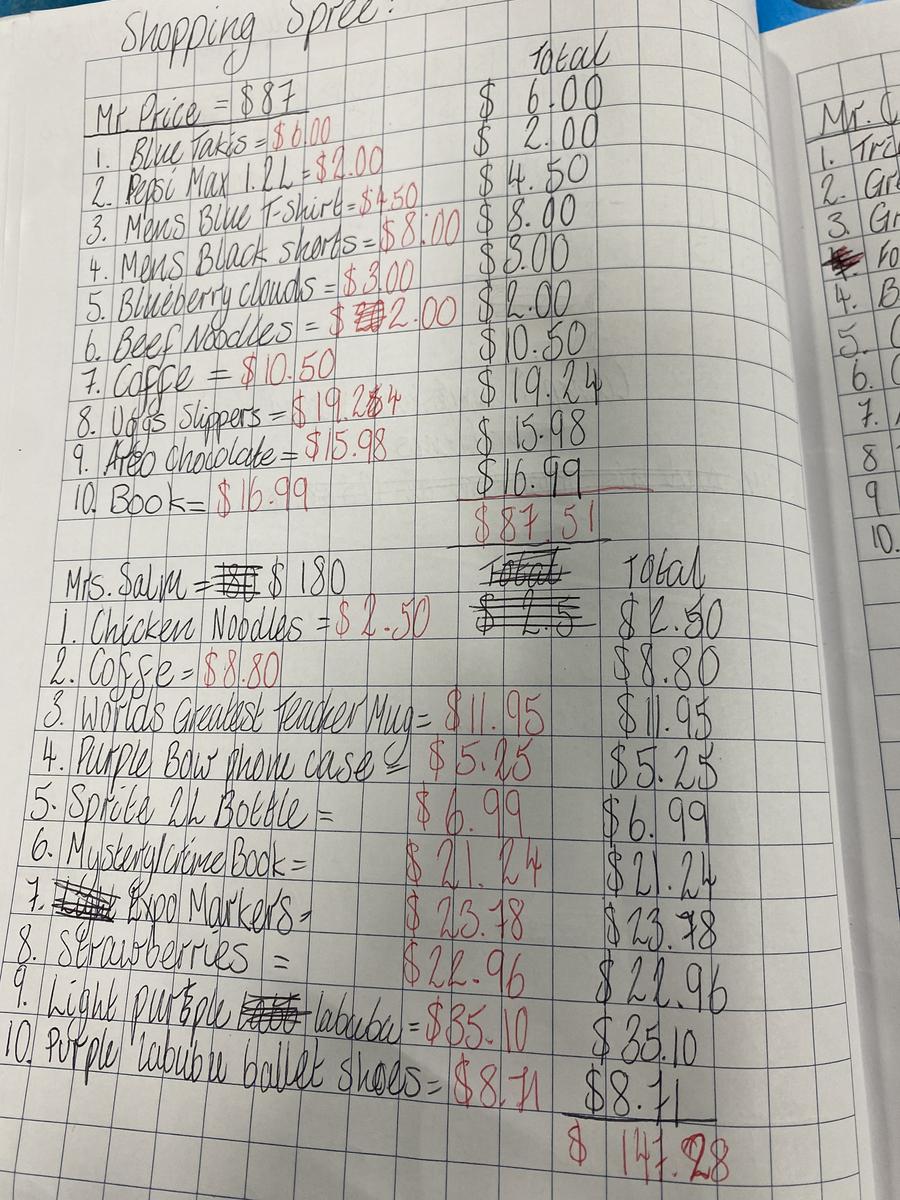 Shopping Spree!
Total
Mr. Price = $87 $ 6.00
1. Blue Takis = $6.00 $ 2.00
2. Pepsi Max 1.2L = $2.00 $4.50
3. Mens Blue T-Shirt = $4.50 $8.00
4. Mens Black shorts = $8.00 $3.00
5. Blueberry clouds = $3.00 $2.00
6. Beef Noodles = $2.00 $10.50
7. Coffe = $10.50 $19.24
8. Uggs Slippers = $19.24 $15.98
9. Areo chocolate = $15.98 $16.99
10. Book = $16.99 $87.51
Mrs. Salim = $180 Total Total
1. Chicken Noodles = $2.50 $ 2.5 $2.50
2. Coffe = $8.80 $8.80
3. Worlds Greatest Teacher Mug = $11.95 $11.95
4. Purple Bow phone case = $5.25 $5.25
5. Sprite 2L Bottle = $6.99 $6.99
6. Mystery/crime Book = $21.24 $21.24
7. Expo Markers = $23.78 $23.78
8. Strawberries = $22.96 $22.96
9. Light purple labubu = $35.10 $35.10
10. Purple labubu ballet shoes = $8.71 $8.71
$ 147.28
Mr.
1.
2. Gr
3. Gr
Fo
4. B
5.
6.
7.
8
9
10.